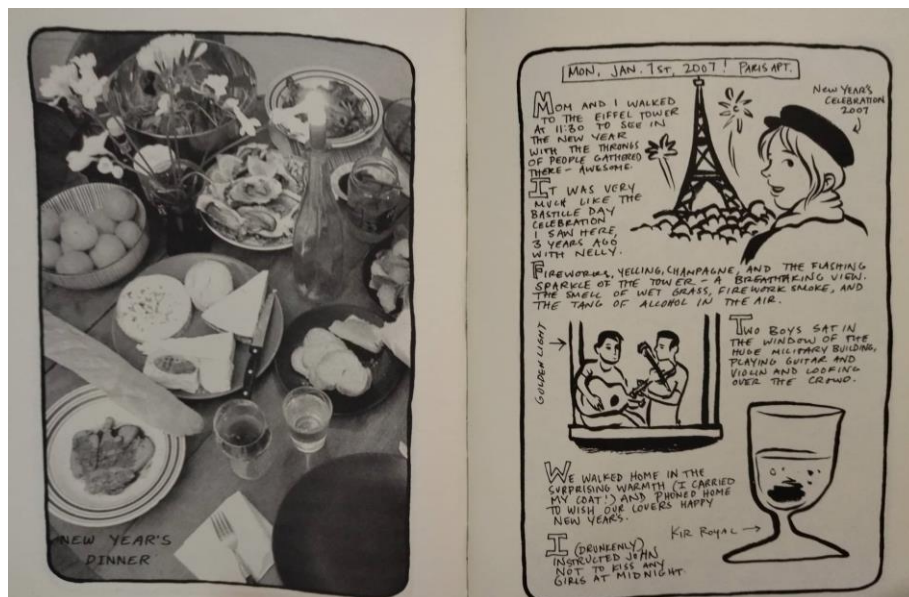 NEW YEAR'S
DINNER
MON, JAN. 1ST, 2007! PARIS APT.
MOM AND I WALKED
TO THE EIFFEL TOWER
AT 11:30 TO SEE IN
THE NEW YEAR
WITH THE THRONGS
OF PEOPLE GATHERED
THERE - AWESOME.
NEW YEAR'S
CELEBRATION
2007
IT WAS VERY
MUCH LIKE THE
BASTILLE DAY
CELEBRATION
I SAW HERE,
3 YEARS AGO
WITH NELLY.
FIREWORKS, YELLING, CHAMPAGNE, AND THE FLASHING
SPARKLE OF THE TOWER - A BREATHTAKING VIEW.
THE SMELL OF WET GRASS, FIREWORK SMOKE, AND
THE TANG OF ALCOHOL IN THE AIR.
GOLDEN LIGHT
TWO BOYS SAT IN
THE WINDOW OF THE
HUGE MILITARY BUILDING,
PLAYING GUITAR AND
VIOLIN AND LOOKING
OVER THE CROWD.
WE WALKED HOME IN THE
SURPRISING WARMTH (I CARRIED
MY COAT!) AND PHONED HOME
TO WISH OUR LOVERS HAPPY
NEW YEAR'S.
KIR ROYAL
I (DRUNKENLY)
INSTRUCTED JOHN
NOT TO KISS ANY
GIRLS AT MIDNIGHT